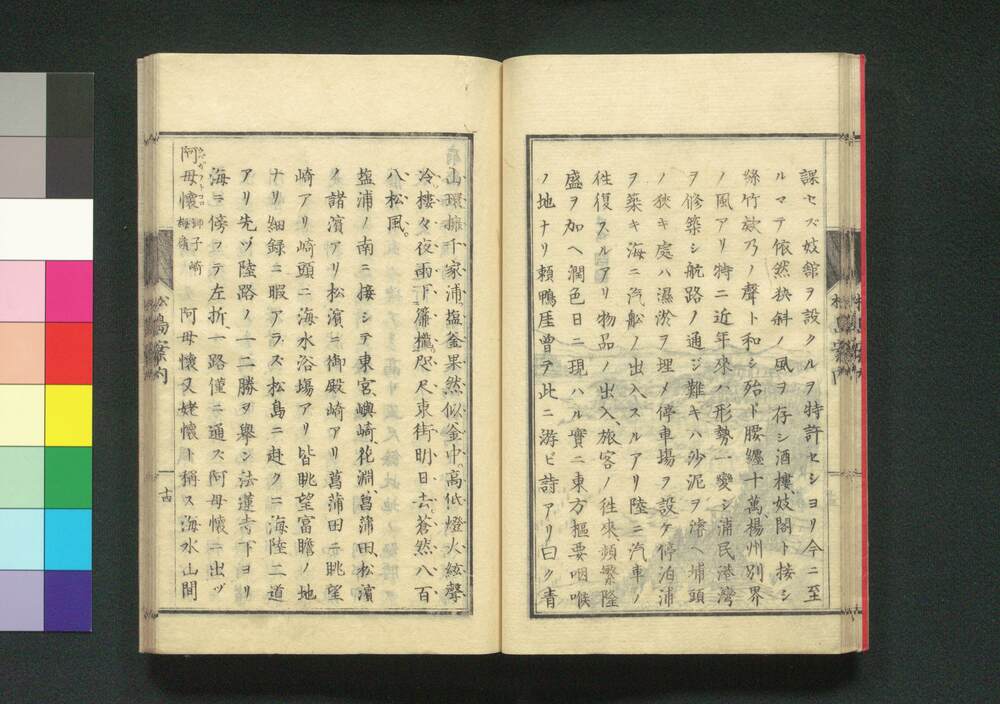 課セズ妓館ヲ設クルヲ特許セシヨリ今ニ至
ルマテ依然狹斜ノ風ヲ存シ酒樓妓閣ト接シ
絲竹欸乃ノ聲ト和シ殆ト腰纏十萬楊州別界
ノ風アリ特ニ近年來ハ形勢一變シ浦民港灣
ヲ修築シ航路ノ通シ難キハ沙泥ヲ濬ヘ埔頭
ノ狹キ處ハ濕淤ヲ埋メ停車場ヲ設ケ停泊浦
ヲ築キ海ニ汽船ノ出入スルアリ陸ニ汽車ノ
徃復スルアリ物品ノ出入、旅客ノ徃來頻繁隆
盛ヲ加ヘ潤色日ニ現ハル實ニ東方樞要咽喉
ノ地ナリ賴鴨厓曾テ此ニ游ビ詩アリ曰ク青
山環擁千家浦。塩釜果然似釜中。高低燈火絃聲
冷。樓々夜雨下簾櫳。咫尺東街明日去。蒼然八百
八松風。
塩浦ノ南ニ接シテ東宮、嶼崎、花淵、菖蒲田、松濱
ノ諸濱アリ松濱ニ御殿崎アリ菖蒲田ニ眺望
崎アリ崎頭ニ海水浴塲アリ皆眺望富瞻ノ地
ナリ細録ニ暇アラス松島ニ赴クニ海陸二道
アリ先ヅ陸路ノ一二勝ヲ擧ン法蓮寺下ヨリ
海ニ傍フテ左折、一路僅ニ通ス阿母懷ニ出ヅ
阿母懷 獅子崎 阿母懷又姥懷ト稱ス海水山間
松島案内
十四